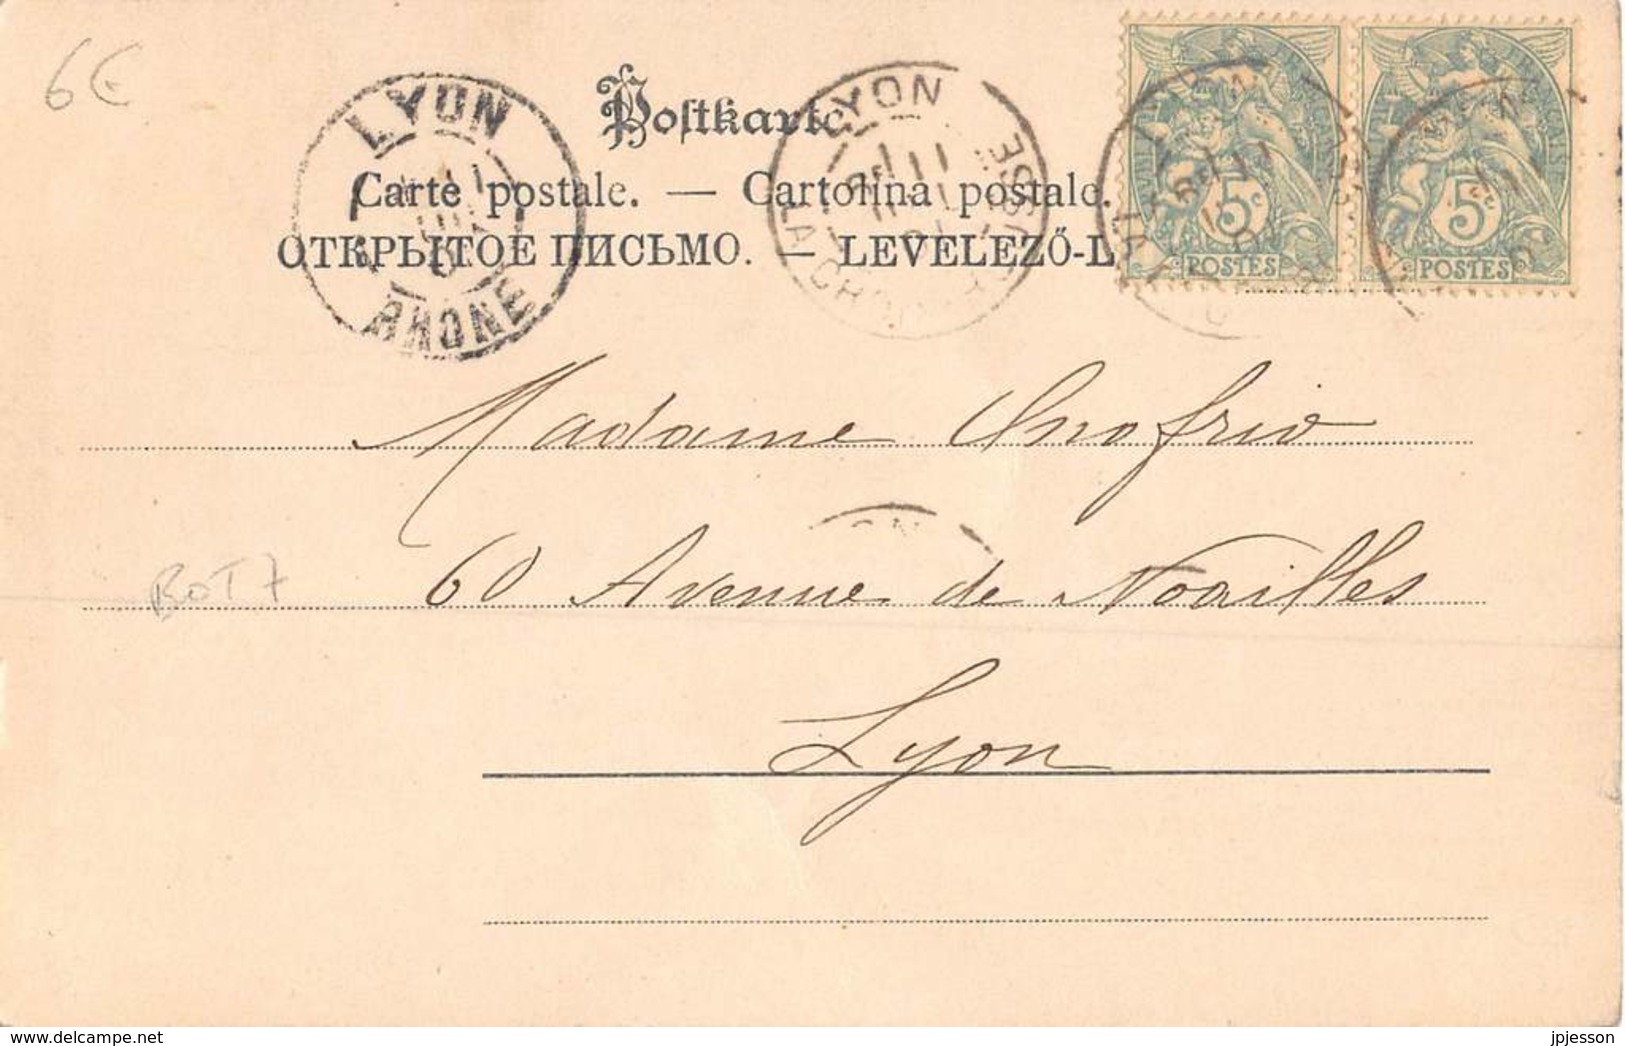 6€
LYON
RHONE
Postkarte
LYON
Carte postale. — Cartolina postale.
ОТКРЫТОЕ ПИСЬМО. — LEVELEZŐ-L
5c
POSTES
5c
POSTES
Madame Onofrio
60 Avenue de Noailles
BOT7
Lyon
jpjesson